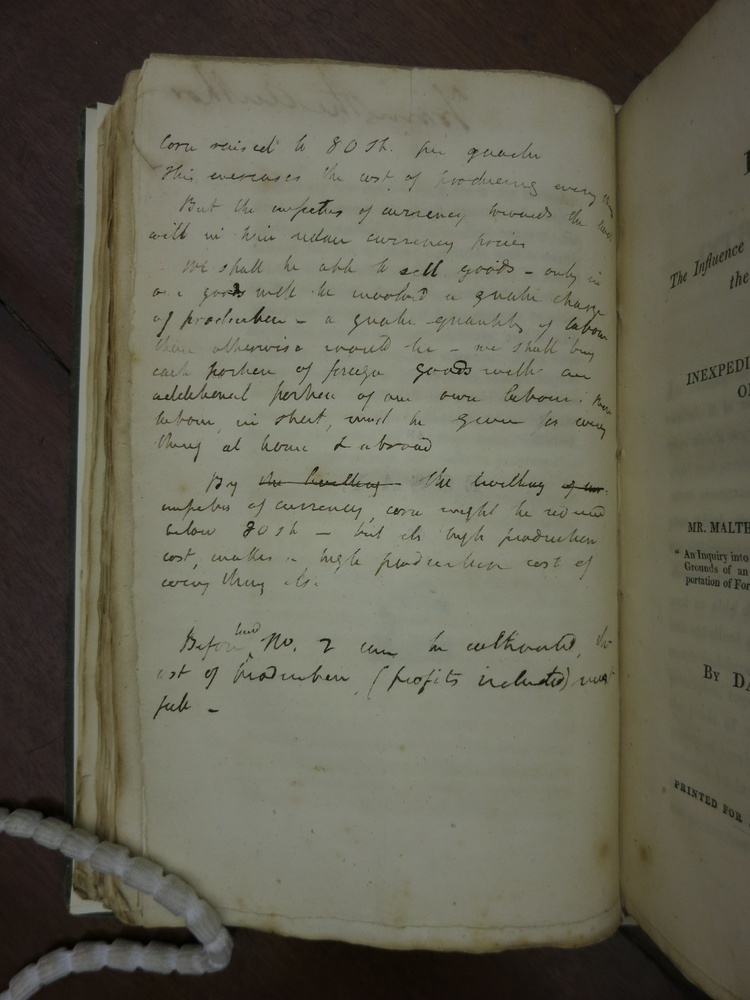 From the Author
Corn raised to 80 sh. per quarter
This increases the cost of producing every thing
But the impetus of currency towards the level
will in turn reduce currency prices
We shall be able to sell goods – only in
as a goods will be involved a greater charge
of production – a greater quantity of labour
than otherwise would be – we shall buy
each portion of foreign goods with an
additional portion of our own labour. More
labour, in short, must be given for every
thing at home & abroad
By the levelling the levelling of our
impetus of currency, corn might be reduced
below 80 sh – but its high production
cost, makes a high production cost of
every thing else.
Before land No. 2 can be cultivated, the
cost of production (profits included) must
fall –
The Influence
the
INEXPEDI
O
MR. MALTH
"An Inquiry into
Grounds of an
portation of For
BY DA
PRINTED FOR